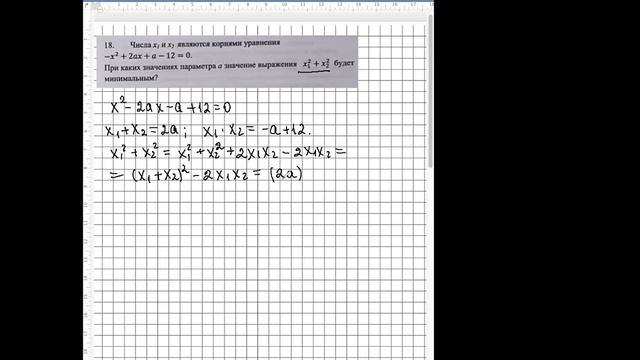 18. Числа x₁ и x₂ являются корнями уравнения
−x² + 2ax + a − 12 = 0.
При каких значениях параметра a значение выражения x₁² + x₂² будет
минимальным?
x² − 2ax − a + 12 = 0
x₁ + x₂ = 2a; x₁ · x₂ = −a + 12.
x₁² + x₂² = x₁² + x₂² + 2x₁x₂ − 2x₁x₂ =
= (x₁ + x₂)² − 2x₁x₂ = (2a)